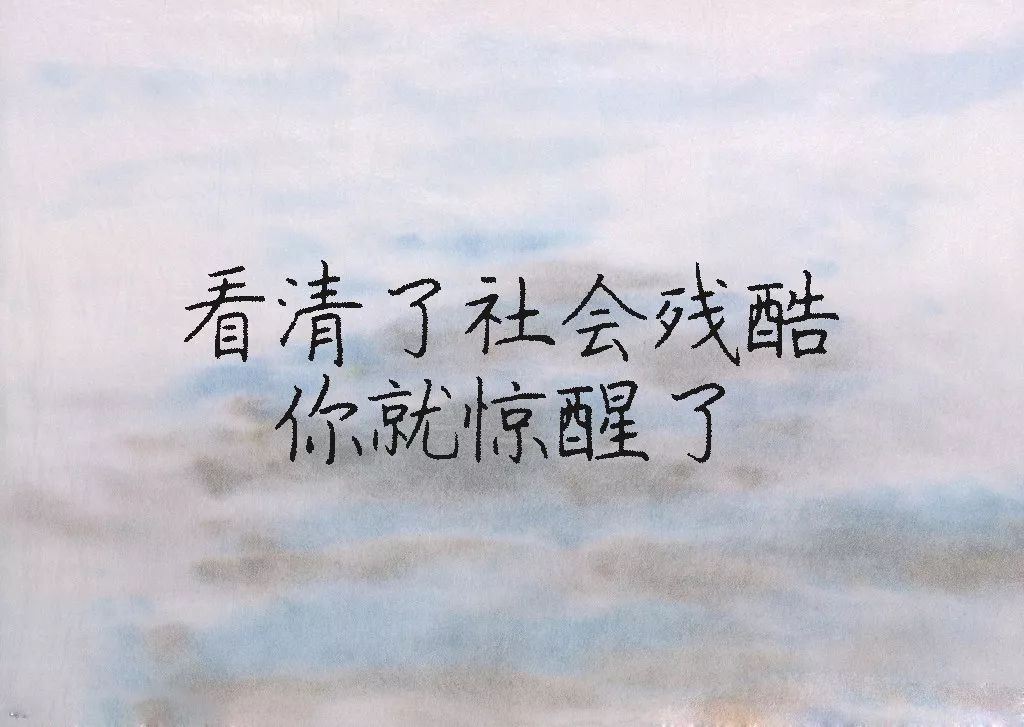 看清了社会残酷
你就惊醒了